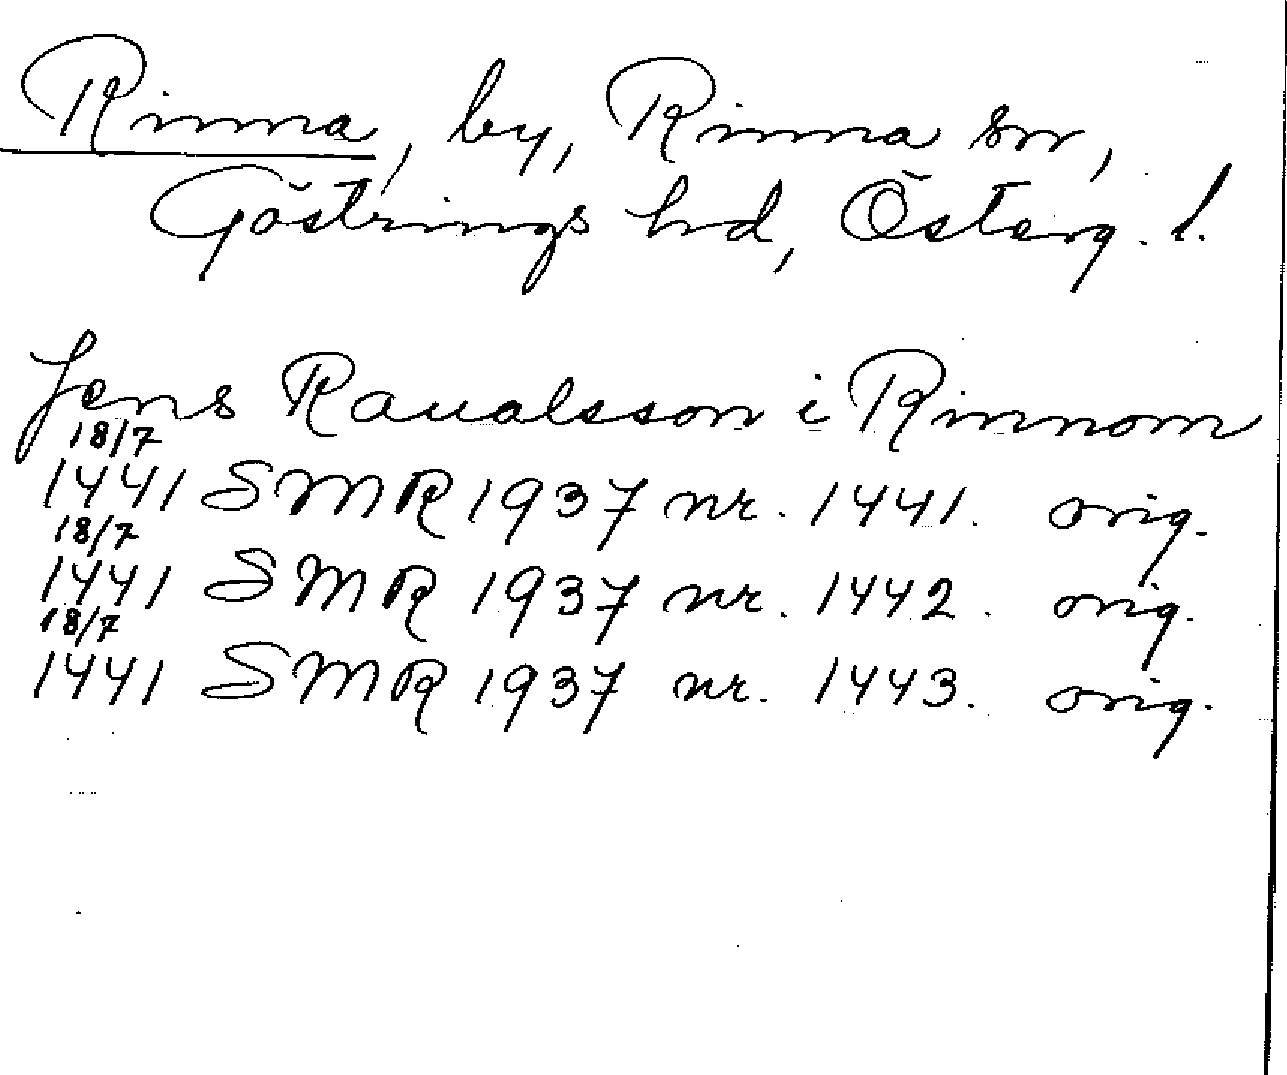 Rinna, by, Rinna sn,
Göstrings hd, Österg. l.
Jens Raualsson i Rinnom
18/7
1441 SMR 1937 nr. 1441. orig.
18/7
1441 SMR 1937 nr. 1442. orig.
18/7
1441 SMR 1937 nr. 1443. orig.